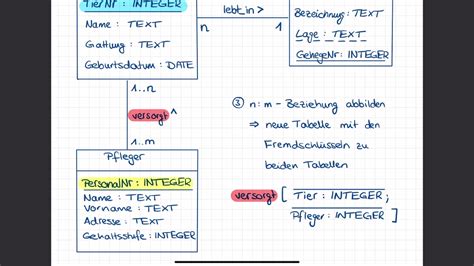 TierNr : INTEGER
Name : TEXT
Gattung : TEXT
Geburtsdatum : DATE
lebt_in >
n
1
Bezeichnung : TEXT
Lage : TEXT
GehegeNr : INTEGER
1..n
versorgt ^
1..m
Pfleger
PersonalNr : INTEGER
Name : TEXT
Vorname : TEXT
Adresse : TEXT
Gehaltsstufe : INTEGER
③ n:m - Beziehung abbilden
⇒ neue Tabelle mit den
Fremdschlüsseln zu
beiden Tabellen
versorgt [ Tier : INTEGER ;
Pfleger : INTEGER ]